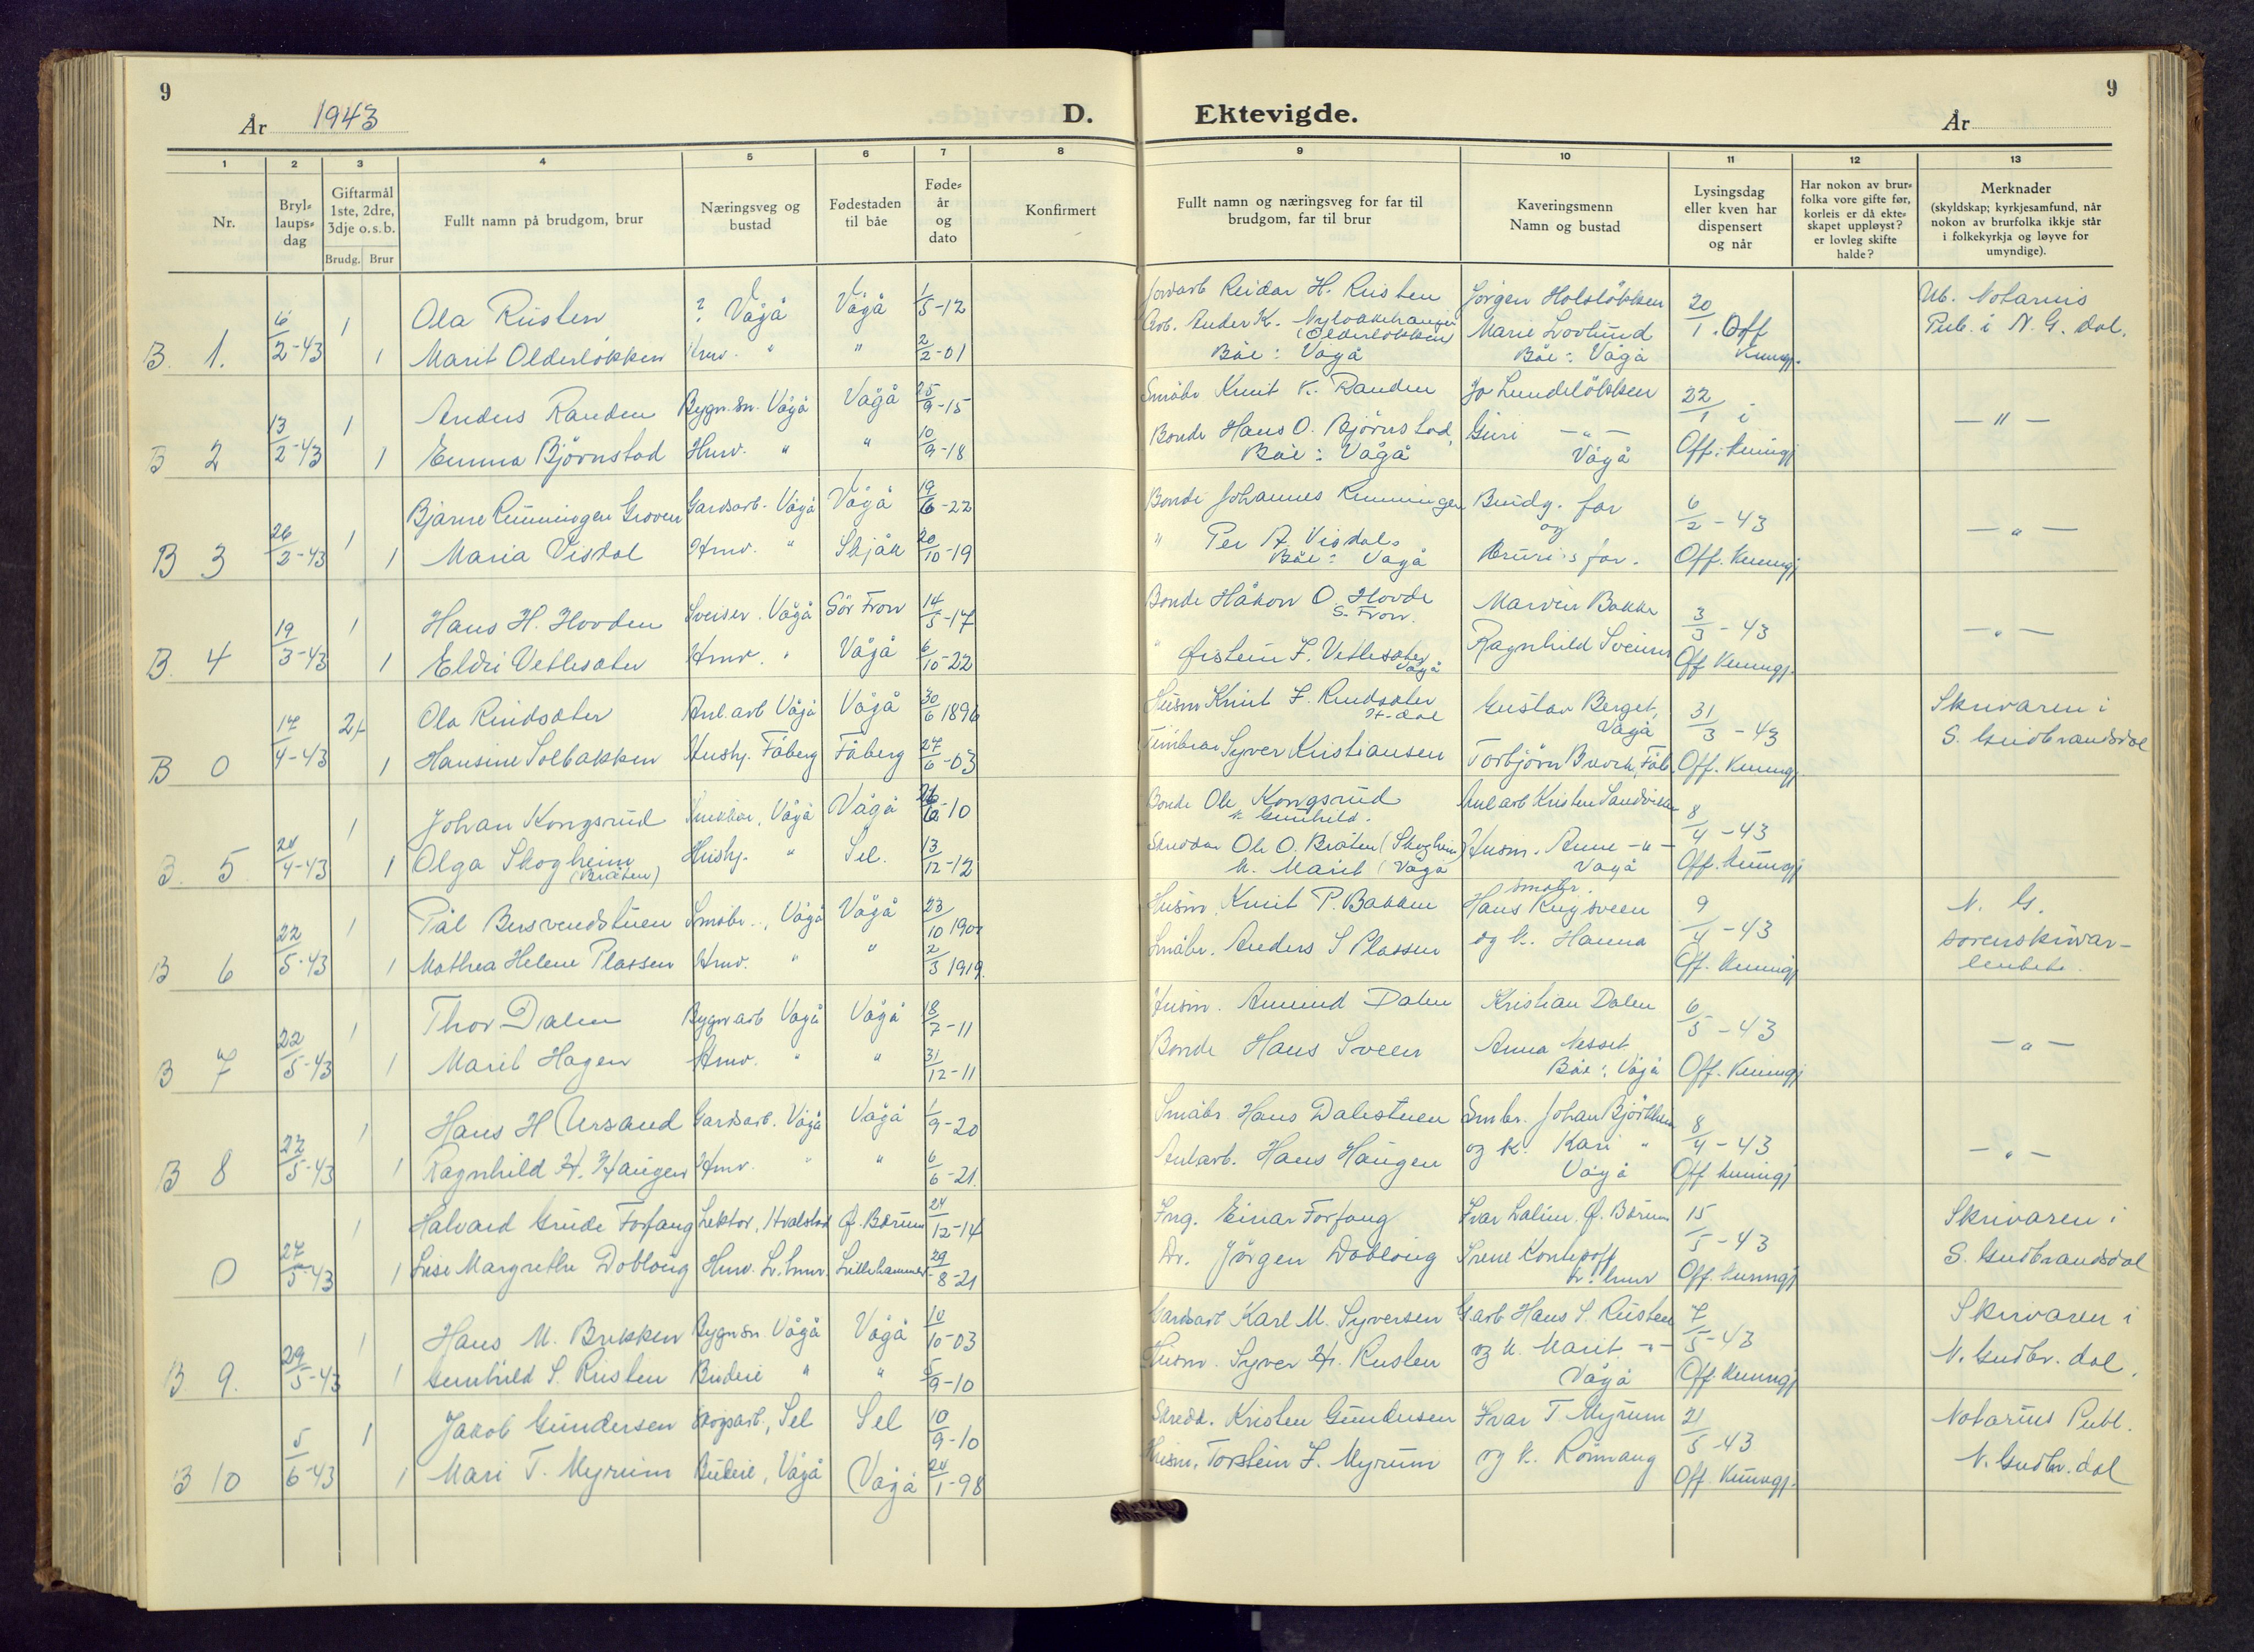 9
År 1943
D.
1 2 3 4 5 6 7 8
Nr.
Bryl-
laups-
dag
Giftarmål
1ste, 2dre,
3dje o. s. b.
Brudg. Brur
Fullt namn på brudgom, brur
Næringsveg og
bustad
Fødestaden
til båe
Føde-
år
og
dato
Konfirmert
Ola Rusten ? Vågå Vågå 1/5-12
B. 1. 6/2-43 1 1 Marit Olderløkken Hmv. " " 2/2-01
Anders Randen Bygn.sn. Vågå Vågå 25/9-15
B 2 13/2-43 1 1 Emma Bjørnstad Hmv. " " 10/9-18
Bjarne Rimmingen Groven Gardsarb. Vågå Vågå 19/6-22
B 3 26/2-43 1 1 Maria Visdal Hmv. " Skjåk 20/10-19
Hans H. Hovden Sveiser. Vågå Sör Fron 14/5-17
B. 4 19/3-43 1 1 Eldri Vetlesæter Hmv. " Vågå 6/10-22
Ola Rindsæter Anl.arb Vågå Vågå 30/6 1896
B 0 17/4-43 2 1 Hansine Solbakken Hushj. Fåberg Fåberg 27/6-03
Johan Kongsrud Vågå Vågå 26/6-10
B. 5. 24/4-43 1 1 Olga Skogheim Hushj. " Sel. 13/12-12
(Bråten)
Pål Bersvendstuen Småbr., Vågå Vågå 23/10 190
B 6 22/5-43 1 1 Mathea Helene Plassen Hmv. " " 2/3 1919.
Thor Dalen Bygn arb Vågå Vågå 18/7-11
B 7 22/5-43 1 1 Marit Hagen Hmv. " " 31/12-11
Hans H Ursand Gardsarb. Vågå Vågå 1/9-20
B 8 22/5-43 1 1 Ragnhild H. Haugen Hmv. " " 6/6-21.
Halvard Grude Forfang Lektor, Hvalstad Ø. Bærum 24/12-14
0 27/5-43 1 1 Lise Margrethe Dobloug Hmv. L.hmr. Lillehammer 29/8-21
Hans M. Brekken Bygn sn Vågå Vågå 10/10-03
B 9. 29/5-43 1 1 Gunhild S. Rusten Budeie " " 5/9-10
Jakob Gundersen Skogsarb., Sel Sel 10/9-10
B 10 5/6-43 1 1 Mari T. Myrum Budeie, Vågå Vågå 24/1-98
Ektevigde.
9
År
9 10 11 12 13
Fullt namn og næringsveg for far til
brudgom, far til brur
Kaveringsmenn
Namn og bustad
Lysingsdag
eller kven har
dispensert
og når
Har nokon av brur-
folka vore gifte før,
korleis er då ekte-
skapet uppløyst?
er lovleg skifte
halde?
Merknader
(skyldskap; kyrkjesamfund, når
nokon av brurfolka ikkje står
i folkekyrkja og løyve for
umyndige).
Jordarb Reidar H. Rusten Jörgen Holsløkken 20/1. Off Ub. Notarius
Arb. Anders K. Nyløkkehaugen Marie Lovlund Kunngj. Pub. i N. G. dal.
(Olderløkken)
Båe: Vågå Båe: Vågå
Småbr Knut K. Randen Jo Lundeløkken 22/1
Bonde Hans O. Bjørnstad, Guri — " — Off. kunngj — " —
Båe: Vågå Vågå
Bonde Johannes Rimmingen Brudg. far 6/2-43
og — " —
" Per A Visdal. Bruri s far. Off. kunngj
Båe: Vågå
Bonde Håkon O. Hovde Marvin Bakke 3/3-43
S. Fron. — " —
" Østein F. Vetlesæter Ragnhild Sveine Off Kunngj.
Vågå
Husm Knut F. Rindsæter Gustav Berget, 31/3-43 Skrivaren i
H-dal Vågå S. Gudbrandsdal
Syver Kristiansen Torbjörn Fåb. Off. Kunngj
Bonde Ole Kongsrud Anl arb Kristen Sandviken 8/4-43
k. Gunhild.
Skreddar Ole O. Bråten (Skogheim) Husm. Anne — " — Off. kunngj
k. Marit (Vågå Vågå
Husm. Knut P. Bakken småbr. Hans Rugsveen 9/4-43 N. G.
Småbr. Anders S Plassen og k. Hanna Off. Kunngj sorenskrivar-
Husm. Amund Dalen Kristian Dalen 6/5-43
Bonde Hans Sveen Anna Nesset — " —
Båe: Vågå Off. Kunngj
Småbr. Hans Dalestuen Smbr. Johan Bjørkhem 8/4-43
Anlarb. Hans Haugen og k. Kari " — " —
Vågå Off kunngj
Ing. Einar Forfang Ivar Lalim, Ø. Bærum 15/5-43 Skrivaren i
Dr. Jörgen Dobloug Irene Kontopoff S. Gudbrandsdal
L. hmr Off. kunngj
Gardsarb Karl M. Syversen Garb Hans S. Rusten 7/5-43 Skrivaren i
Husm. Syver H. Rusten og k. Marit — " — N. Gudbr. dal.
Vågå Off. Kunngj
Skredd. Kristen Gundersen Ivar T Myrum 21/5-43 Notarius Publ.
Husm. Torstein I. Myrum og k. Rönnaug N. Gudbr. dal
Off. Kunngj.